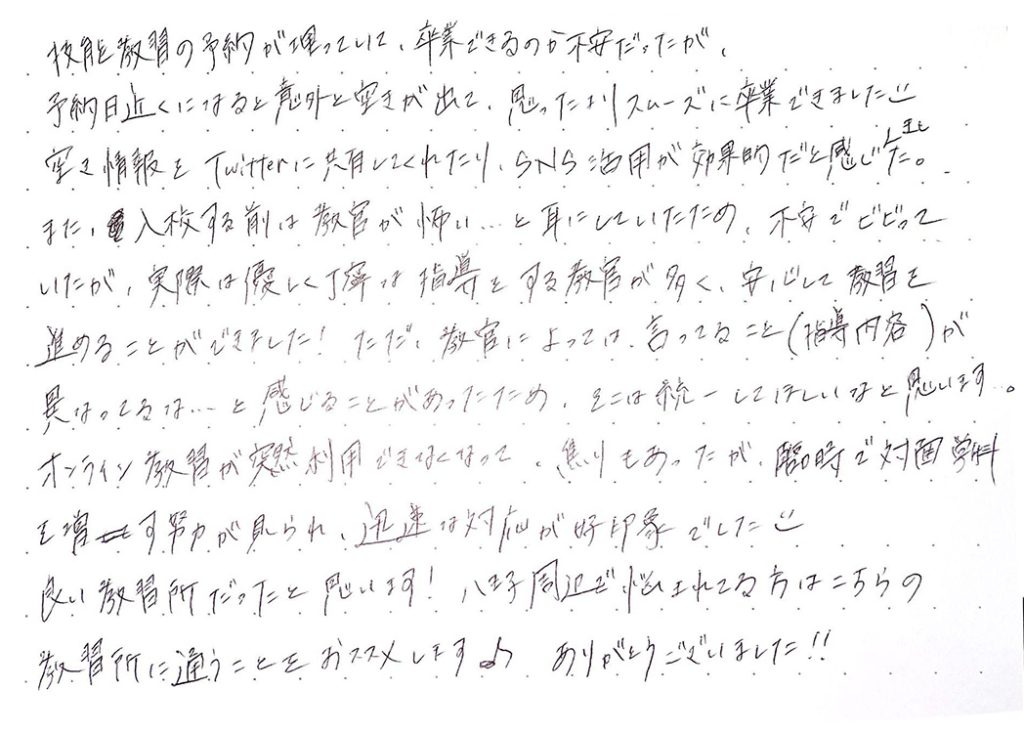 技能教習の予約が埋っていて、卒業できるのか不安だったが、
予約日近くになると意外と空きが出て、思ったよりスムーズに卒業できました
空き情報を Twitterに共有してくれたり、SNS活用が効果的だと感じました。
また、入校する前は教官が怖い…と耳にしていたため、不安でビビって
いたが、実際は優しく丁寧な指導をする教官が多く、安心して教習を
進めることができました！ただ、教官によっては、言ってること(指導内容)が
異なってるな…と感じることがあったため、そこは統一してほしいなと思います…。
オンライン教習が突然利用できなくなって、焦りもあったが、臨時で対面学科
を増す努力が見られ、迅速な対応が好印象でした
良い教習所だったと思います！八王子周辺で悩まれてる方はこちらの
教習所に通うことをおススメします♪ ありがとうございました!!